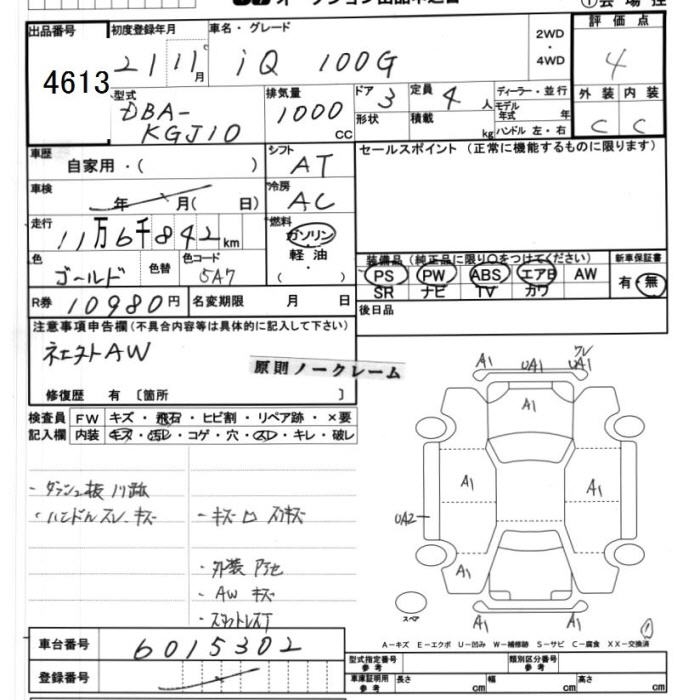 オークション出品申込書
出品番号 初度登録年月 車名・グレード 2WD・4WD 評価点
4613 21 11月 iQ 100G 4
型式 DBA-KGJ10 排気量 1000 CC ドア 3 定員 4人 ディーラー・並行 外装 内装
形状 積載 kg モデル年式 年 ハンドル 左・右 C C
車歴 自家用・( ) シフト AT セールスポイント (正常に機能するものに限ります)
車検 年 月( 日) 冷房 AC
走行 11万6千842km 燃料 ガソリン 軽油・( )
色 ゴールド 色替 色コード 5A7
装備品(純正品に限り○をつけてください) 新車保証書
PS PW ABS エアB AW 有・無
SR ナビ TV カワ
R券 10980円 名変期限 月 日 後日品
注意事項申告欄(不具合内容等は具体的に記入して下さい)
AW
原則ノークレーム
修復歴 有〔箇所 〕
検査員 FW キズ・飛石・ヒビ割・リペア跡・×要
記入欄 内装 キズ・汚レ・コゲ・穴・スレ・キレ・破レ
ハンドルスレ キズ
外装
AW キズ
A1 UA1 UA1
A1
A1 A1
UA2
A1
スペア
A-キズ E-エクボ U-凹み W-補修跡 S-サビ C-腐食 XX-交換済
車台番号 6015302
登録番号
型式指定番号参考 類別区分番号参考
車庫証明用参考 長さ cm 幅 cm 高さ cm